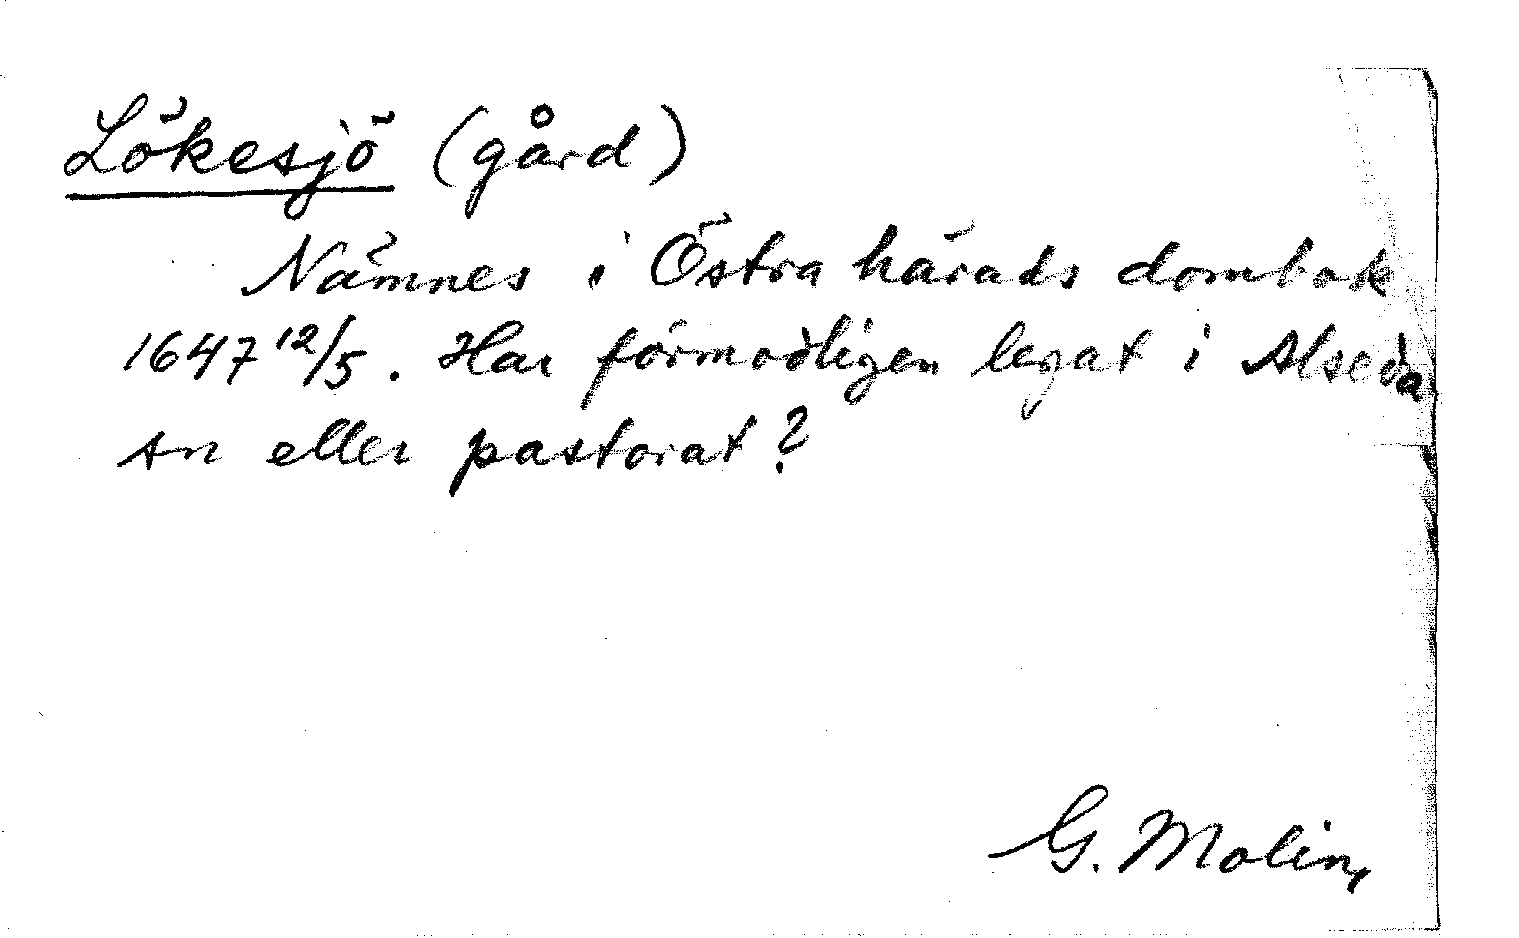 Lökesjö (gård)
Nämnes i Östra härads dombok
1647 12/5. Har förmodligen legat i Alseda
sn eller pastorat?
G. Molin,